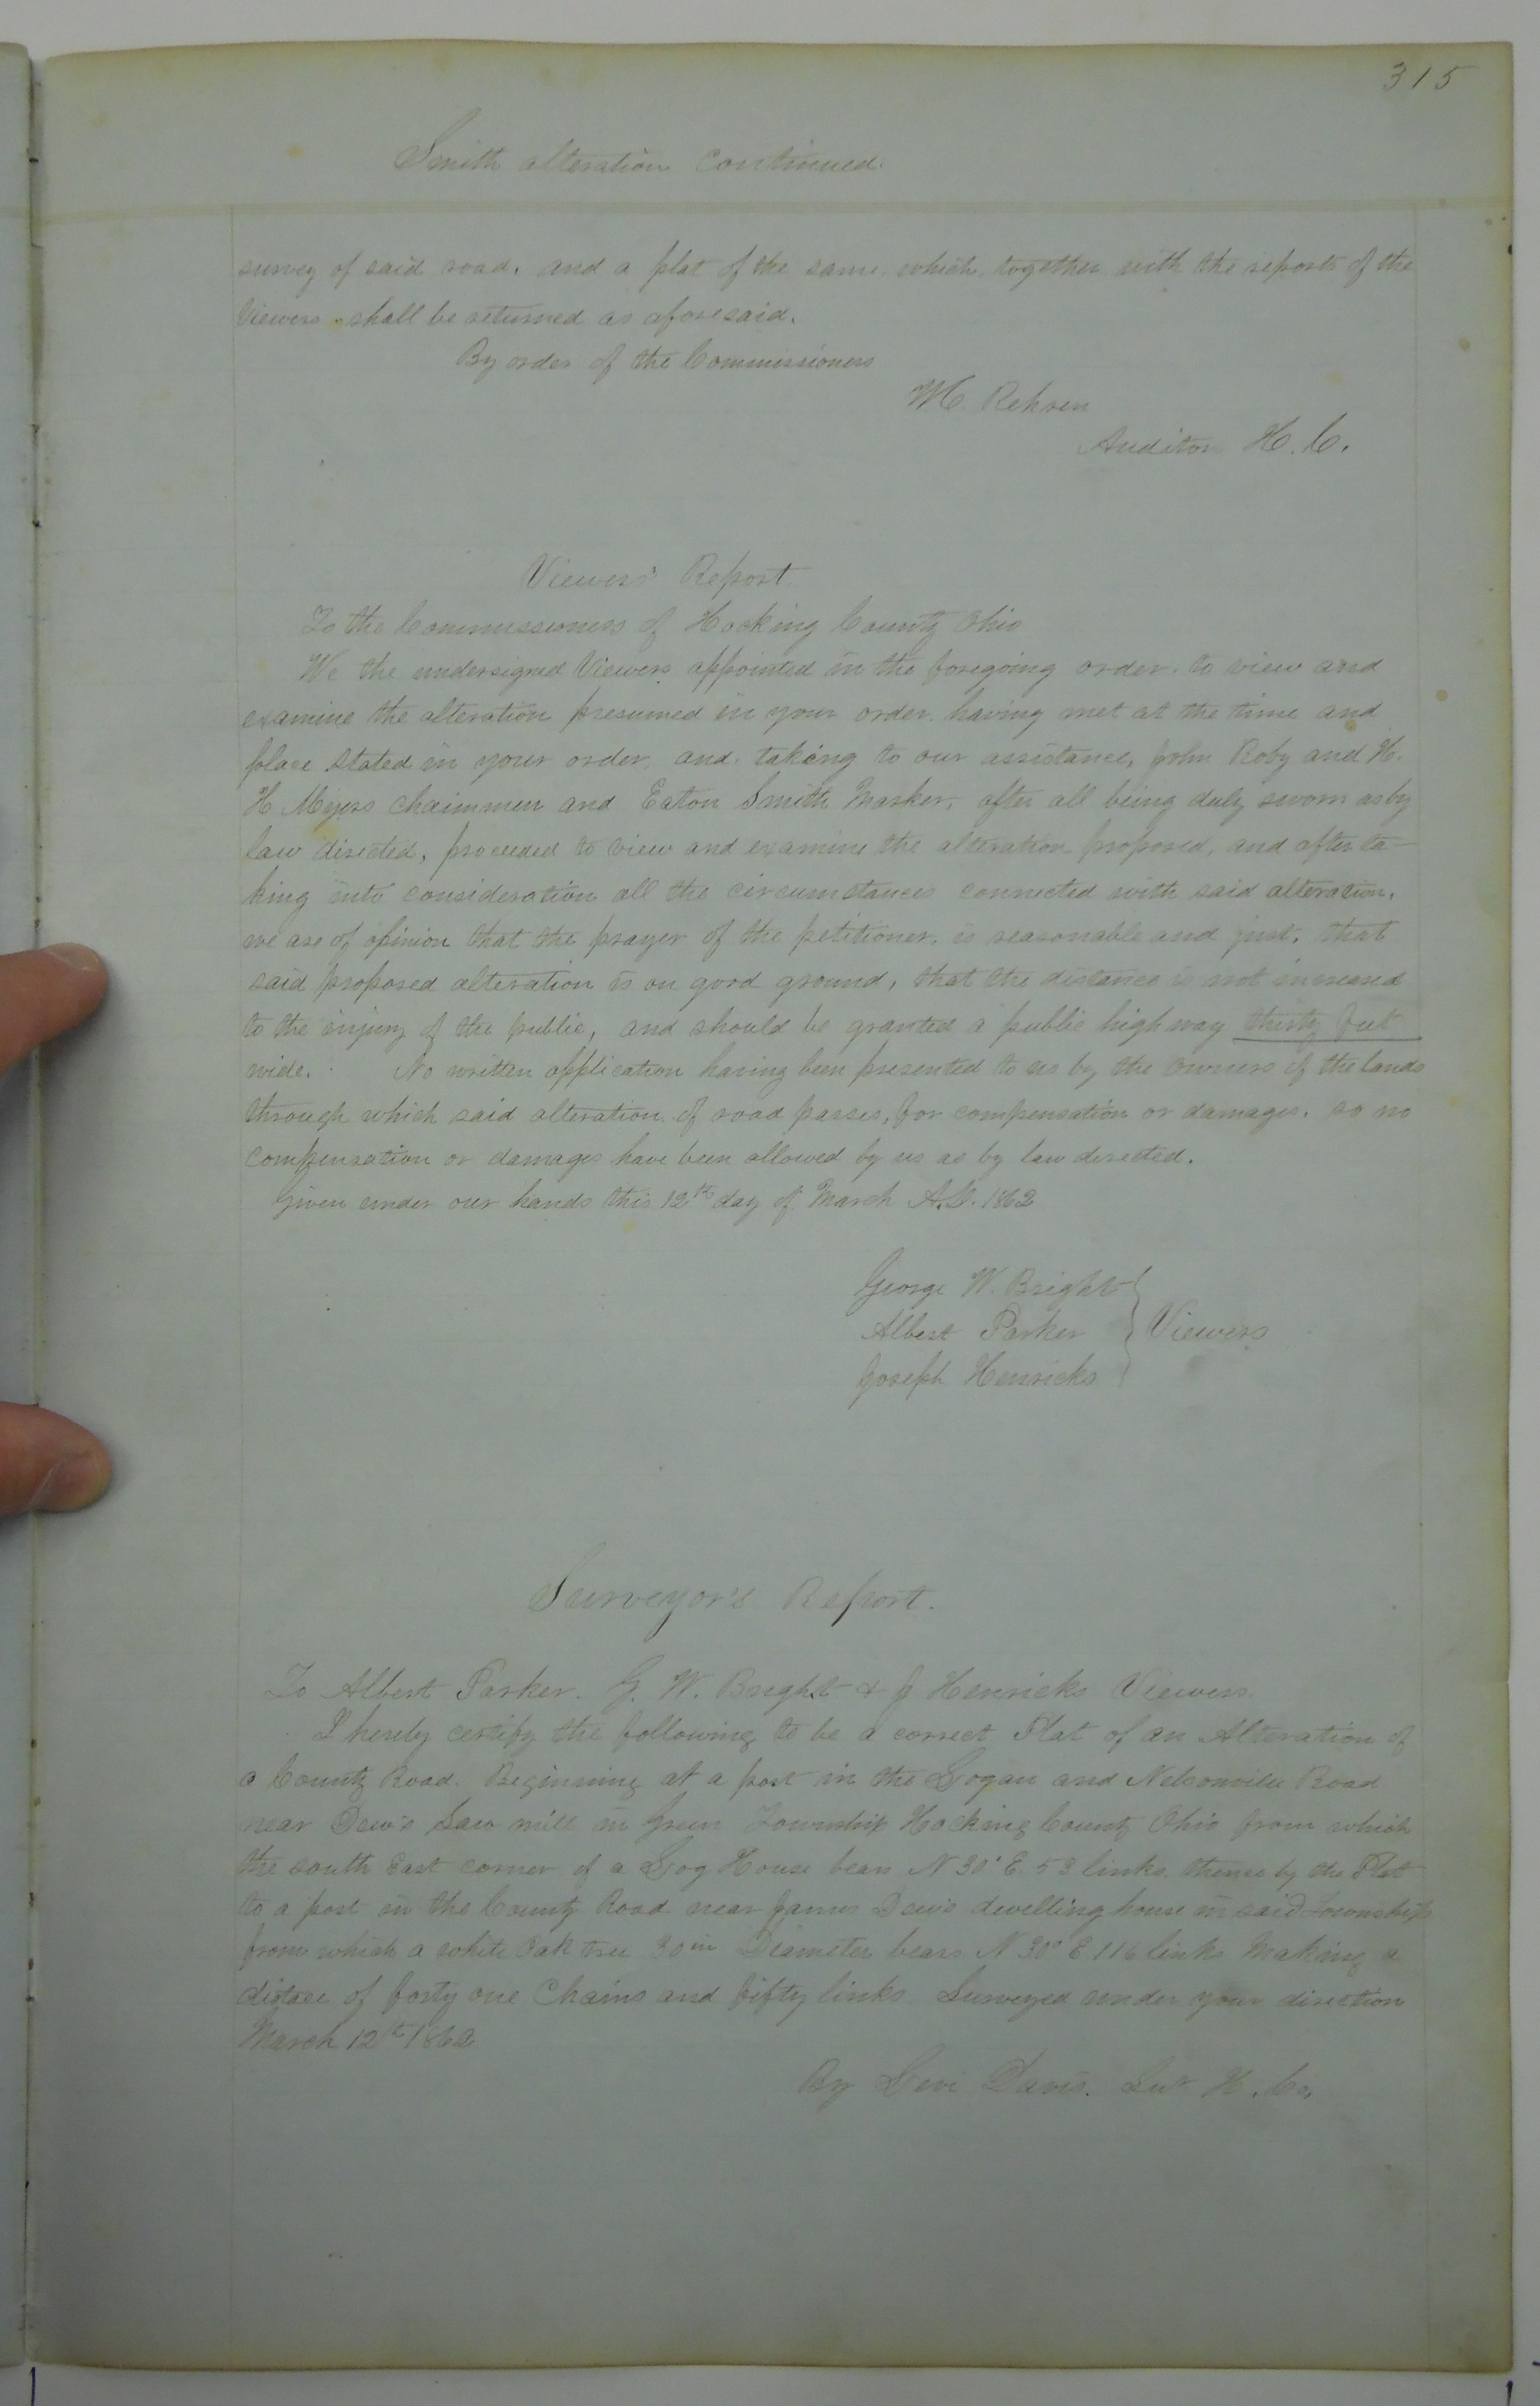 315
Smith alteration continued.
survey of said road, and a plat of the same, which, together with the reports of the
Viewers shall be returned as aforesaid.
By order of the Commissioners
M. Rehren
Auditor H. C.
Viewers' Report.
To the Commissioners of Hocking County Ohio
We the undersigned Viewers appointed in the foregoing order, to view and
examine the alteration presumed in your order, having met at the time and
place stated in your order, and, taking to our assistance, John Roby and H.
H Meyers chainmen and Eaton Smith Marker, after all being duly sworn as by
law directed, proceeded to view and examine the alteration proposed, and after ta-
king into consideration all the circumstances connected with said alteration,
we are of opinion that the prayer of the petitioner, is reasonable and just, that
said proposed alteration is on good ground, that the distance is not increased
to the injury of the public, and should be granted a public highway thirty feet
wide. No written application having been presented to us by the owners of the lands
through which said alteration of road passes, for compensation or damages, so no
compensation or damages have been allowed by us as by law directed.
Given under our hands this 12th day of March A.D. 1862
George W. Bright
Albert Parker } Viewers
Joseph Henricks
Surveyor's Report.
To Albert Parker. G. W. Bright & J Henricks Viewers.
I hereby certify the following to be a correct Plat of an Alteration of
a County Road. Beginning at a post in the Logan and Nelsonville Road
near Dew's Saw mill in Green Township Hocking County Ohio from which
the south East corner of a Log House bears N 30° E. 53 links. thence by the Plat
to a post in the County Road near James Dew's dwelling house in said Township
from which a white Oak tree 30 in Diameter bears N 30° E 116 links Making a
distace of forty one Chains and fifty links Surveyed under your direction
March 12th 1862
By Levi Davis. Sur H. Co.